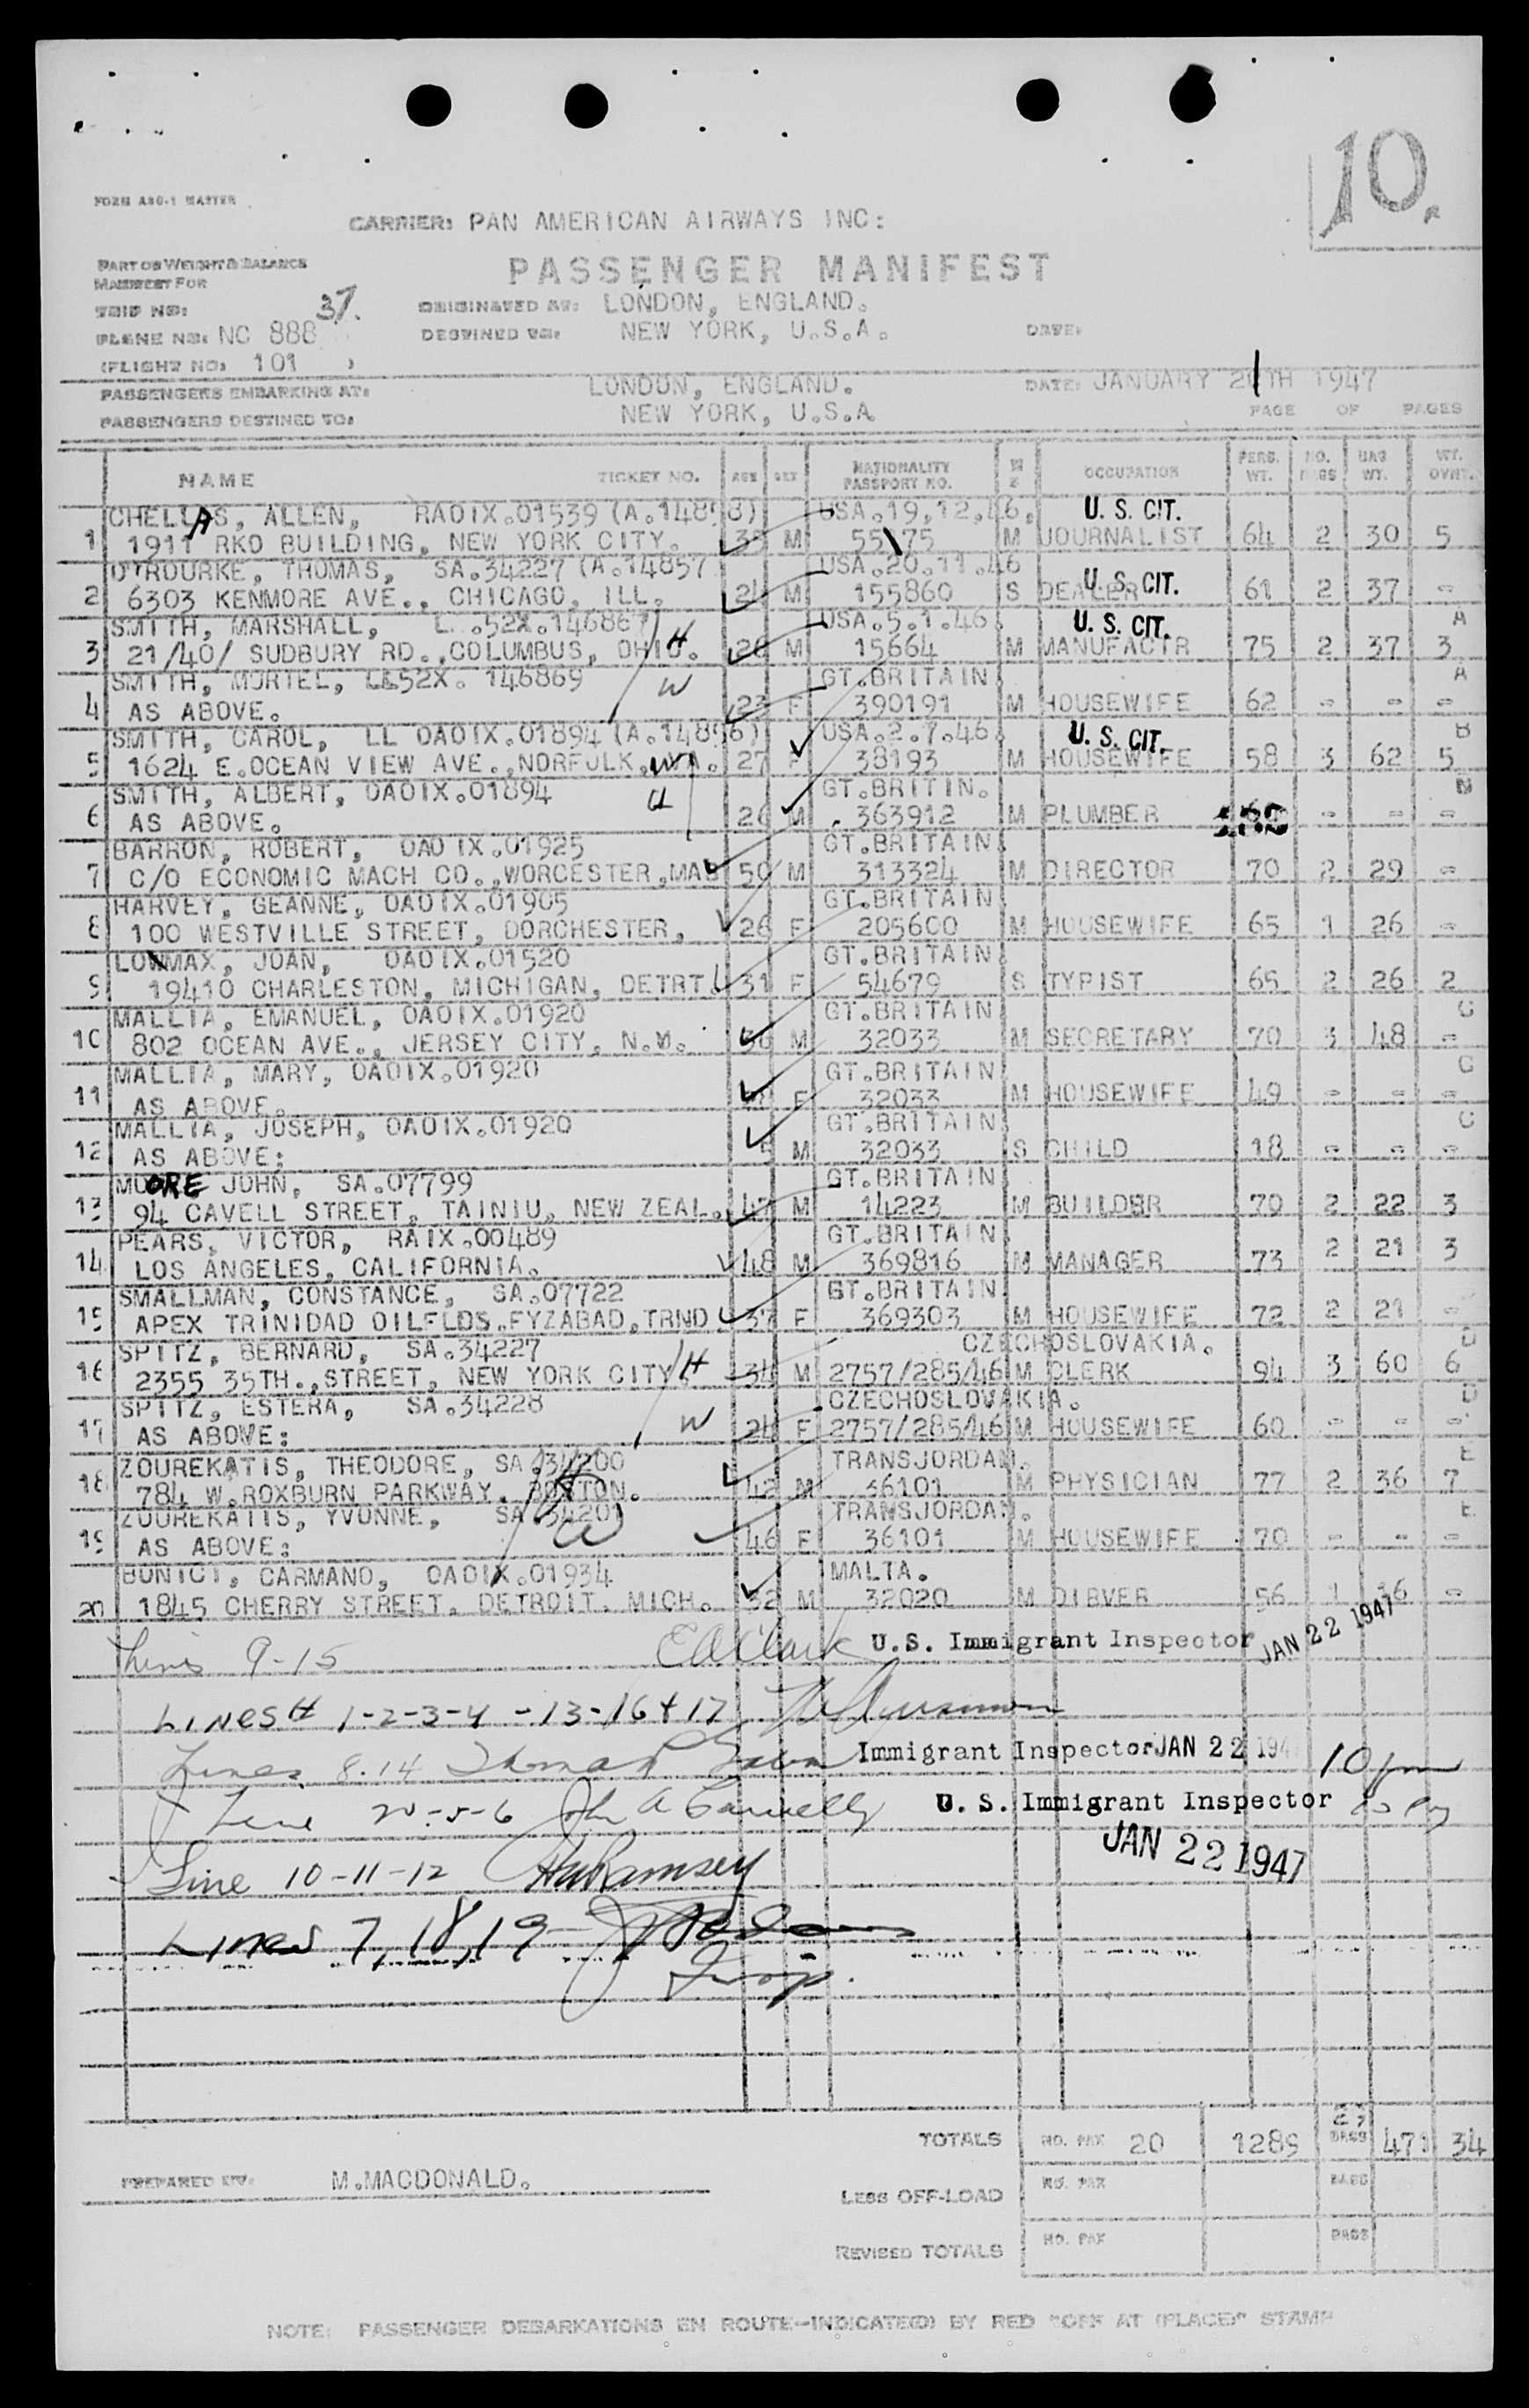 10.
FORM A80-1 MASTER
CARRIER: PAN AMERICAN AIRWAYS INC:
PART OF WEIGHT & BALANCE
MANIFEST FOR
PASSENGER MANIFEST
TRIP NO: 37.
ORIGINATED AT: LONDON, ENGLAND.
PLANE NO: NC 888
DESTINED TO: NEW YORK, U.S.A. DATE:
(FLIGHT NO: 101 )
PASSENGERS EMBARKING AT: LONDON, ENGLAND. DATE: JANUARY 21TH 1947
PASSENGERS DESTINED TO: NEW YORK, U.S.A PAGE OF PAGES
NAME TICKET NO. AGE SEX NATIONALITY PASSPORT NO. OCCUPATION PERS. WT. NO. BAGS BAG WT. WT. OVWT.
CHELLAS, ALLEN, RAOIX.01539 (A.14858) USA.19.12.46. U. S. CIT.
1 1911 RKO BUILDING, NEW YORK CITY. M 55175 M JOURNALIST 64 2 30 5
O'ROURKE, THOMAS, SA.34227 (A.14857 USA.20.11.46 U. S. CIT.
2 6303 KENMORE AVE., CHICAGO, ILL. 24 M 155860 S DEALER 61 2 37 -
SMITH, MARSHALL, 52X.146867 USA.5.1.46 U. S. CIT. A
3 21/40/ SUDBURY RD.,COLUMBUS, OHIO. H 26 M 15664 M MANUFACTR 75 2 37 3
SMITH, MURIEL, LL52X. 146869 W GT.BRITAIN A
4 AS ABOVE. 23 F 390191 M HOUSEWIFE 62 - - -
SMITH, CAROL, LL OAOIX.01894 (A.14856) USA.2.7.46. U. S. CIT. B
5 1624 E.OCEAN VIEW AVE.,NORFOLK, W 27 F 38193 M HOUSEWIFE 58 3 62 5
SMITH, ALBERT, OAOIX.01894 H GT.BRITIN. B
6 AS ABOVE. 26 M 363912 M PLUMBER - - -
BARRON, ROBERT, OAOIX.01925 GT.BRITAIN
7 C/O ECONOMIC MACH CO.,WORCESTER,MAS 50 M 313324 M DIRECTOR 70 2 29 -
HARVEY, GEANNE, OAOIX.01905 GT.BRITAIN
8 100 WESTVILLE STREET, DORCHESTER, 26 F 205600 M HOUSEWIFE 65 1 26 -
LOWMAX, JOAN, OAOIX.01520 GT.BRITAIN
9 19410 CHARLESTON, MICHIGAN, DETRT. 31 F 54679 S TYPIST 65 2 26 2
MALLIA, EMANUEL, OAOIX.01920 GT.BRITAIN C
10 802 OCEAN AVE., JERSEY CITY, M 32033 M SECRETARY 70 3 48 -
MALLIA, MARY, OAOIX.01920 GT.BRITAIN C
11 AS ABOVE. F 32033 M HOUSEWIFE 49 - - -
MALLIA, JOSEPH, OAOIX.01920 GT.BRITAIN C
12 AS ABOVE: 5 M 32033 S CHILD 18 - - -
MOORE JOHN, SA.07799 GT.BRITAIN
13 94 CAVELL STREET, TAINIU, NEW ZEAL. 47 M 14223 M BUILDER 70 2 22 3
PEARS, VICTOR, RAIX.00489 GT.BRITAIN
14 LOS ANGELES, CALIFORNIA. 48 M 369816 M MANAGER 73 2 21 3
SMALLMAN, CONSTANCE, SA.07722 GT.BRITAIN
15 APEX TRINIDAD OILFLDS.FYZABAD,TRND 37 F 369303 M HOUSEWIFE 72 2 21 -
SPITZ, BERNARD, SA.34227 CZECHOSLOVAKIA. D
16 2355 35TH.,STREET, NEW YORK CITY. H 34 M 2757/285/46 M CLERK 94 3 60 6
SPITZ, ESTERA, SA.34228 CZECHOSLOVAKIA. D
17 AS ABOVE: W 24 F 2757/285/46 M HOUSEWIFE 60 - - -
ZOUREKATIS, THEODORE, SA.34200 TRANSJORDAN. E
18 784 W.ROXBURN PARKWAY, BOSTON. H 42 M 36101 M PHYSICIAN 77 2 36 7
ZOUREKATIS, YVONNE, SA.34201 TRANSJORDAN. E
19 AS ABOVE: W 46 F 36101 M HOUSEWIFE 70 - - -
BONICI, CARMANO, OAOIX.01934 MALTA.
20 1845 CHERRY STREET, DETROIT, MICH. 32 M 32020 M DIRVER 56 1 36 -
Lines 9-15 E A Clark U.S. Immigrant Inspector JAN 22 1947
LINES # 1-2-3-4-13-16+17
Lines 8.14 Thomas Immigrant Inspector JAN 22 194 10 pm
Line 20-5-6 John A Connelly U. S. Immigrant Inspector
JAN 22 1947
Line 10-11-12 Ramsey
Lines 7, 18, 19
Insp.
TOTALS NO. PAX 20 1289 BAGS 471 34
PREPARED BY: M.MACDONALD.
LESS OFF-LOAD NO. PAX BAGS
REVISED TOTALS NO. PAX BAGS
NOTE: PASSENGER DEBARKATIONS EN ROUTE-INDICATE(D) BY RED "OFF AT (PLACE)" STAMP